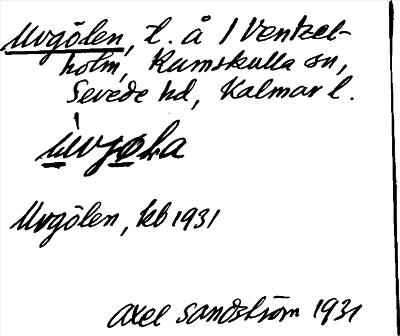 Uvgölen, t. å 1 Ventzel-
holm, Rumskulla sn,
Sevede hd, Kalmar l.
ùvgøla
Uvgölen, kb 1931
Axel Sandström 1931